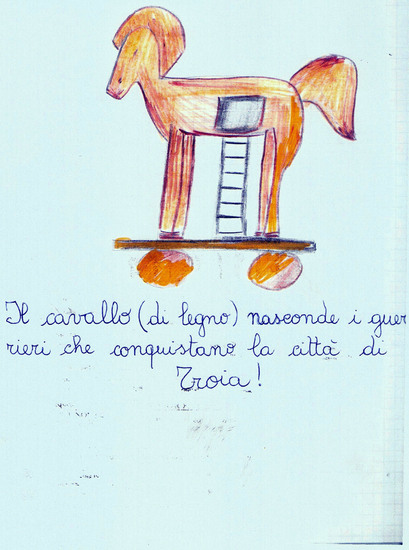 Il cavallo (di legno) nasconde i guer
rieri che conquistano la città di
Troia!